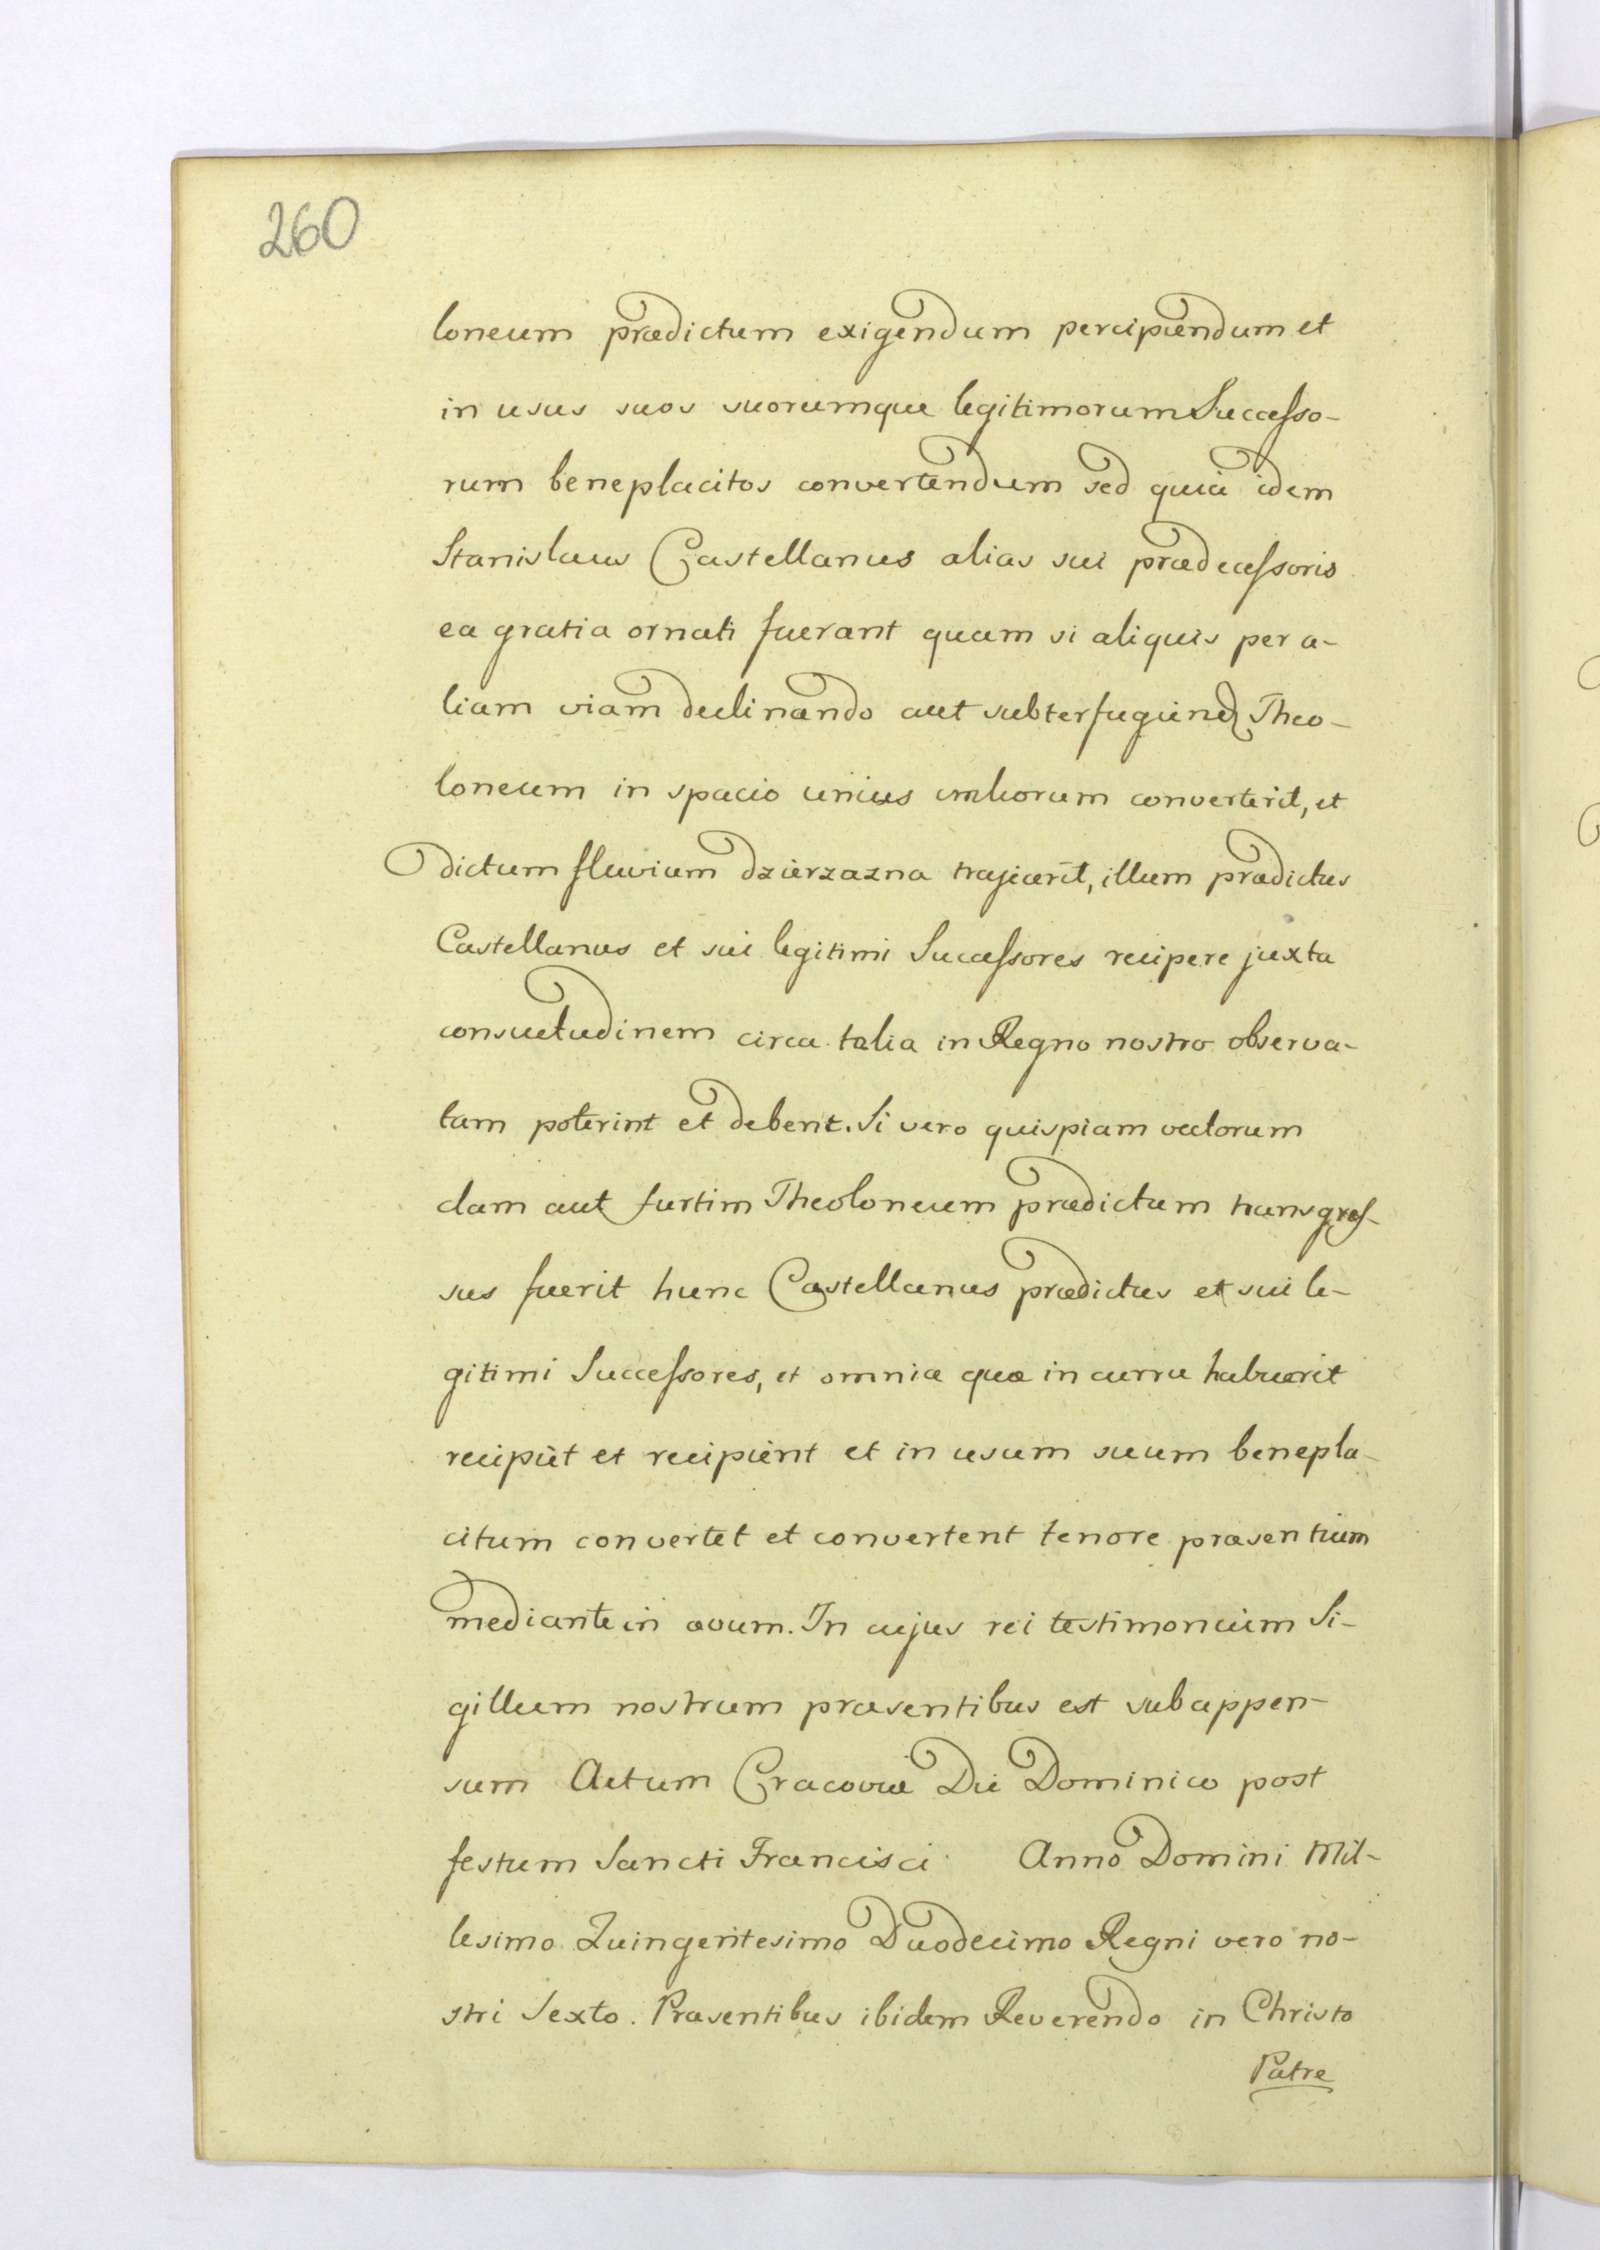 260
loneum prædictum exigendum percipiendum et
in usus suos suorumque legitimorum Successo-
rum beneplacitos convertendum sed quia idem
Stanislaus Castellanus alias sui prædecessoris
ea gratia ornati fuerant quam si aliquis per a-
liam viam declinando aut subterfugiend Theo-
loneum in spacio unius converterit, et
dictum fluvium Dzierzazna trajecerit, illum prædictus
Castellanus et sui legitimi Successores recipere juxta
consuetudinem circa talia in Regno nostro observa-
tam poterint et debent. Si vero quispiam vectorum
clam aut furtim Theoloneum prædictum transgres-
sus fuerit hunc Castellanus prædictus et sui le-
gitimi Successores, et omnia quæ in curru habuerit
recipiet et recipient et in usum suum benepla-
citum convertet et convertent tenore præsentium
mediante in ævum. In cujus rei testimonium Si-
gillum nostrum præsentibus est subappen-
sum Actum Cracoviæ Die Dominico post
festum Sancti Francisci Anno Domini Mil-
lesimo Quingentesimo Duodecimo Regni vero no-
stri Sexto. Præsentibus ibidem Reverendo in Christo
Patre